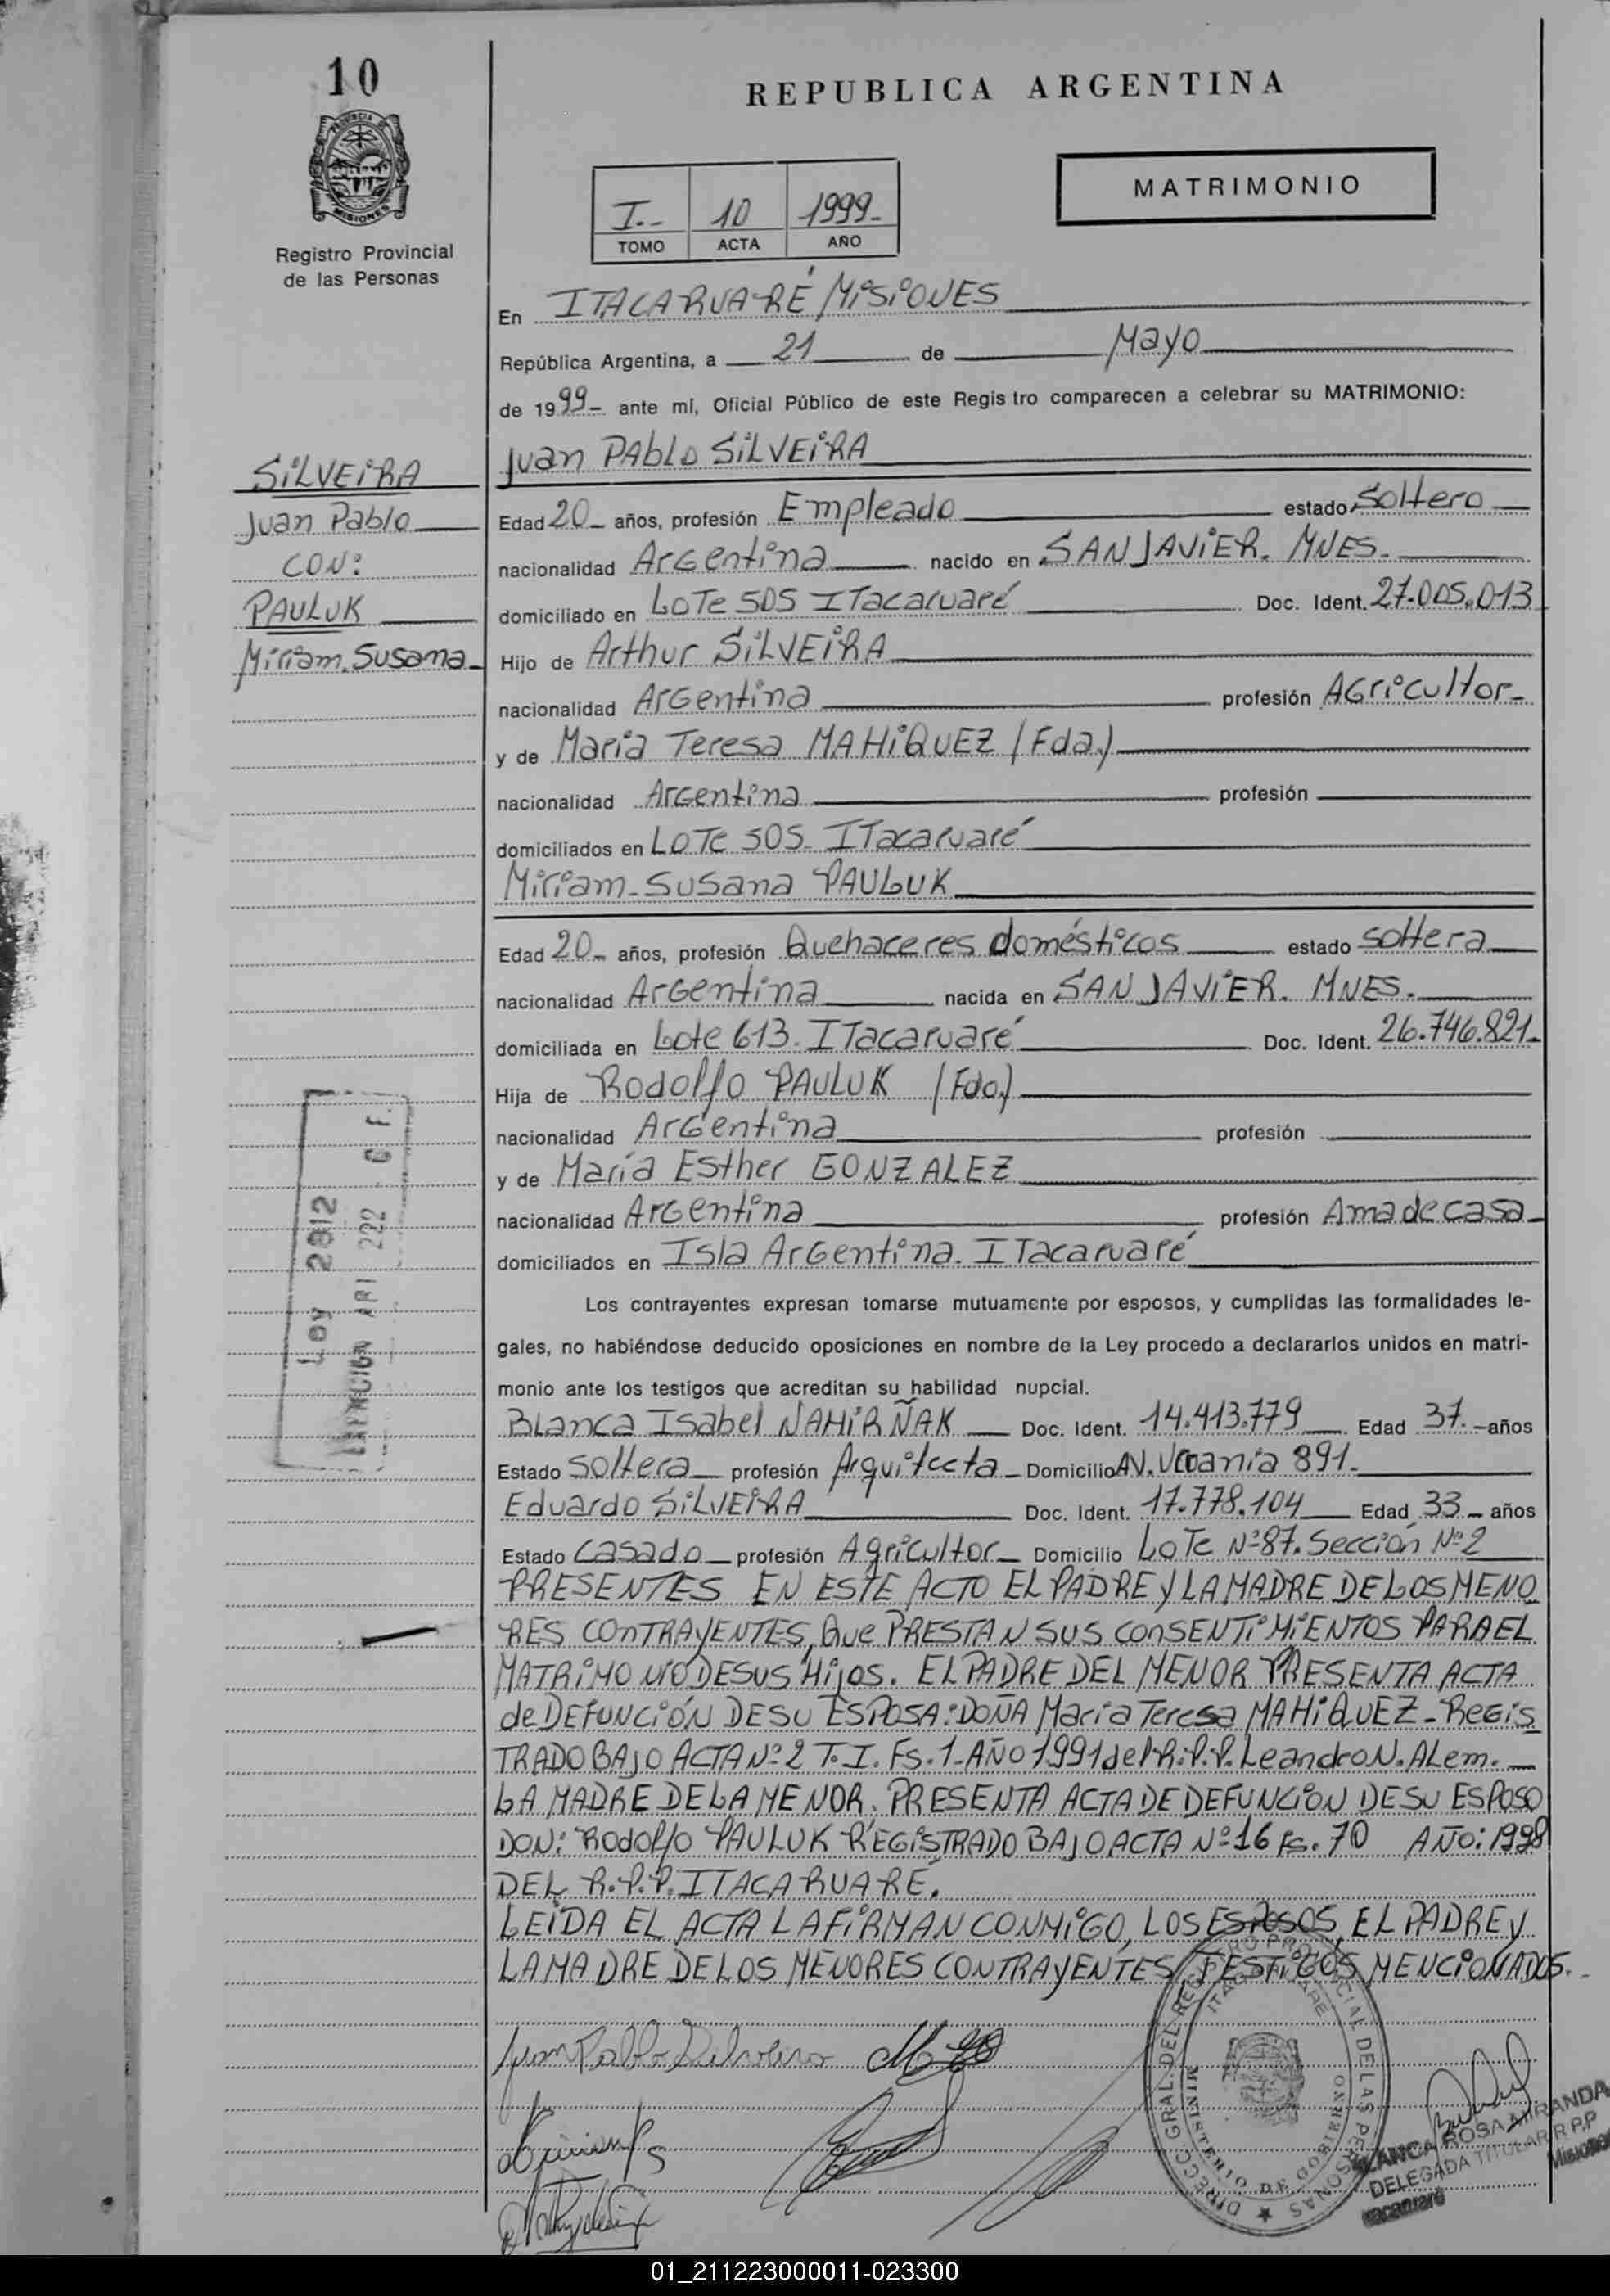 10
PROVINCIA DE
MISIONES
Registro Provincial
de las Personas
REPUBLICA ARGENTINA
I.- 10 1999-
TOMO ACTA AÑO
MATRIMONIO
En ITACARUARÉ MISIONES
República Argentina, a 21 de Mayo
de 1999- ante mí, Oficial Público de este Regis tro comparecen a celebrar su MATRIMONIO:
SILVEIRA
Juan Pablo
CON:
PAULUK
Miriam. Susana
Juan PAblo SILVEIRA
Edad 20- años, profesión Empleado estado Soltero
nacionalidad Argentina nacido en SAN JAVIER. MNES.
domiciliado en LoTe 505 ITacaruaré Doc. Ident. 27.005.013
Hijo de Arthur SILVEIRA
nacionalidad Argentina profesión AGricultor-
y de María Teresa MAHIQUEZ (Fda.)
nacionalidad Argentina profesión
domiciliados en LOTe 505. ITacaruaré
Miriam-Susana PAULUK
Edad 20- años, profesión Quehaceres domésticos estado soltera
nacionalidad Argentina nacida en SAN JAVIER. MNES.
domiciliada en Lote 613. ITacaruaré Doc. Ident. 26.746.821-
Hija de Rodolfo PAULUK (Fdo.)
nacionalidad Argentina profesión
y de María Esther GONZALEZ
nacionalidad Argentina profesión Ama de casa
domiciliados en Isla Argentina. ITacaruaré
Ley 2912
ARI 222 C F.
Los contrayentes expresan tomarse mutuamente por esposos, y cumplidas las formalidades le-
gales, no habiéndose deducido oposiciones en nombre de la Ley procedo a declararlos unidos en matri-
monio ante los testigos que acreditan su habilidad nupcial.
BLanca Isabel NAHIRÑAK Doc. Ident. 14.413.779 Edad 37.- años
Estado Soltera profesión Arquitecta Domicilio AV. Ucrania 891.
Eduardo SILVEIRA Doc. Ident. 17.778.104 Edad 33- años
Estado Casado profesión Agricultor Domicilio LoTe Nº 87. Sección Nº 2
PRESENTES EN ESTE ACTO EL PADRE y LA MADRE DE LOS MENO
RES CONTRAYENTES, QUe PRESTAN SUS CONSENTIMIENTOS PARA EL
MATRIMONIO DE SUS Hijos. EL PADRE DEL MENOR PRESENTA ACTA
de DEFUNCIÓN DE SU ESPOSA: DOÑA María Teresa MAHIQUEZ - REGIS
TRADO BAJO ACTA Nº 2 T. I. Fs. 1- AÑO 1991 del R.P.P. Leandro N. ALem.
LA MADRE DE LA MENOR. PRESENTA ACTA DE DEFUNCION DE SU ESPOSO
DON: Rodolfo PAULUK REGISTRADO BAJO ACTA Nº 16 Fs. 70 AÑO: 1998
DEL R.P.P. ITACARUARÉ.
LEIDA EL ACTA LA FIRMAN CONMIGO, LOS ESPOSOS, EL PADRE y
LA MADRE DE LOS MENORES CONTRAYENTES, TESTIGOS MENCIONADOS.-
Juan Pablo Silveira
DIRECC. GRAL. DEL REGISTRO PROVINCIAL DE LAS PERSONAS
ITACARUARE
MINISTERIO DE GOBIERNO
BLANCA ROSA MIRANDA
DELEGADA TITULAR R.P.P
Itacaruaré Misiones
01_211223000011-023300